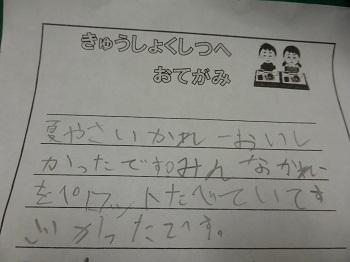 きゅうしょくしつへ
おてがみ
夏やさいかれーおいし
かったです。みんなかれー
をペロットたべていてす
ごかったです。